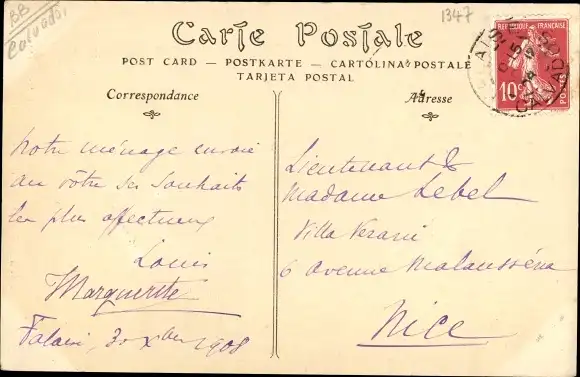 BB
Calvados
1347
Carte Postale
POST CARD — POSTKARTE — CARTOLINA POSTALE
TARJETA POSTAL
Correspondance
Adresse
REPUBLIQUE FRANÇAISE
10c
POSTES
CALVADOS
Notre ménage envoie
au vôtre ses souhaits
les plus affectueux
Louis
Marguerite
Falaise, 30 Xbre 1908
Lieutenant &
Madame Lebel
Villa Verani
6 avenue Malausséna
Nice